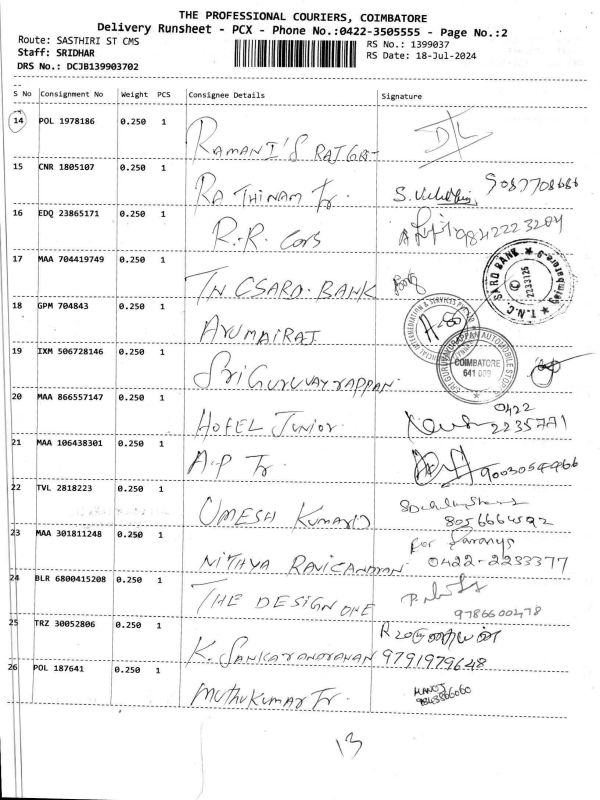 THE PROFESSIONAL COURIERS, COIMBATORE
Delivery Runsheet - PCX - Phone No.:0422-3505555 - Page No.:2
Route: SASTHIRI ST CMS RS No.: 1399037
Staff: SRIDHAR RS Date: 18-Jul-2024
DRS No.: DCJB139903702
S No Consignment No Weight PCS Consignee Details Signature
14 POL 1978186 0.250 1
RAMANI'S
15 CNR 1805107 0.250 1
RATHINAM Tr.
16 EDQ 23865171 0.250 1
R.R. Cars 9842223204
17 MAA 704419749 0.250 1
TN CSARD. BANK
T.N.C. SARD BANK
2233126
18 GPM 704843 0.250 1
19 IXM 506728146 0.250 1
SRI GURUVAYRAPPAN
SRI GURUVAYURAPPAN AUTOMOBILE STORES
COIMBATORE
641 009
20 MAA 866557147 0.250 1
HOTEL JUNIOR. 0422
2235771
21 MAA 106438301 0.250 1
A.P Tr. 9003054466
22 TVL 2818223 0.250 1
UMESH KUMAR
8056664592
23 MAA 301811248 0.250 1
for Saranya
NITHYA RAVICANDRAN 0422-2233377
24 BLR 6800415208 0.250 1
THE DESIGN ONE 9786600478
25 TRZ 30052806 0.250 1
K. 9791979648
26 POL 187641 0.250 1
MUTHUKUMAR Tr. MANOJ
9843866060
13